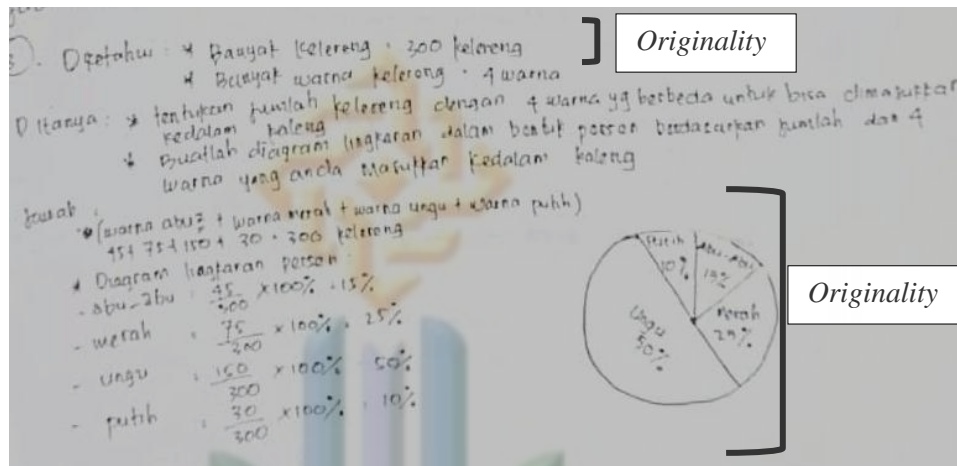 3. Diketahui : * Banyak kelereng : 300 kelereng
* Banyak warna kelereng : 4 warna
Originality
Ditanya : * tentukan jumlah kelereng dengan 4 warna yg berbeda untuk bisa dimasukkan
kedalam kaleng
* Buatlah diagram lingkaran dalam bentuk persen berdasarkan jumlah dan 4
warna yang anda masukkan kedalam kaleng
Jawab :
* (warna abu2 + warna merah + warna ungu + warna putih)
45 + 75 + 150 + 30 = 300 kelereng
* Diagram lingkaran persen :
- abu-abu : 45/300 x 100% = 15%
- merah : 75/300 x 100% = 25%
- ungu : 150/300 x 100% = 50%
- putih : 30/300 x 100% = 10%
Putih
10%
abu-abu
15%
Merah
25%
Ungu
50%
Originality